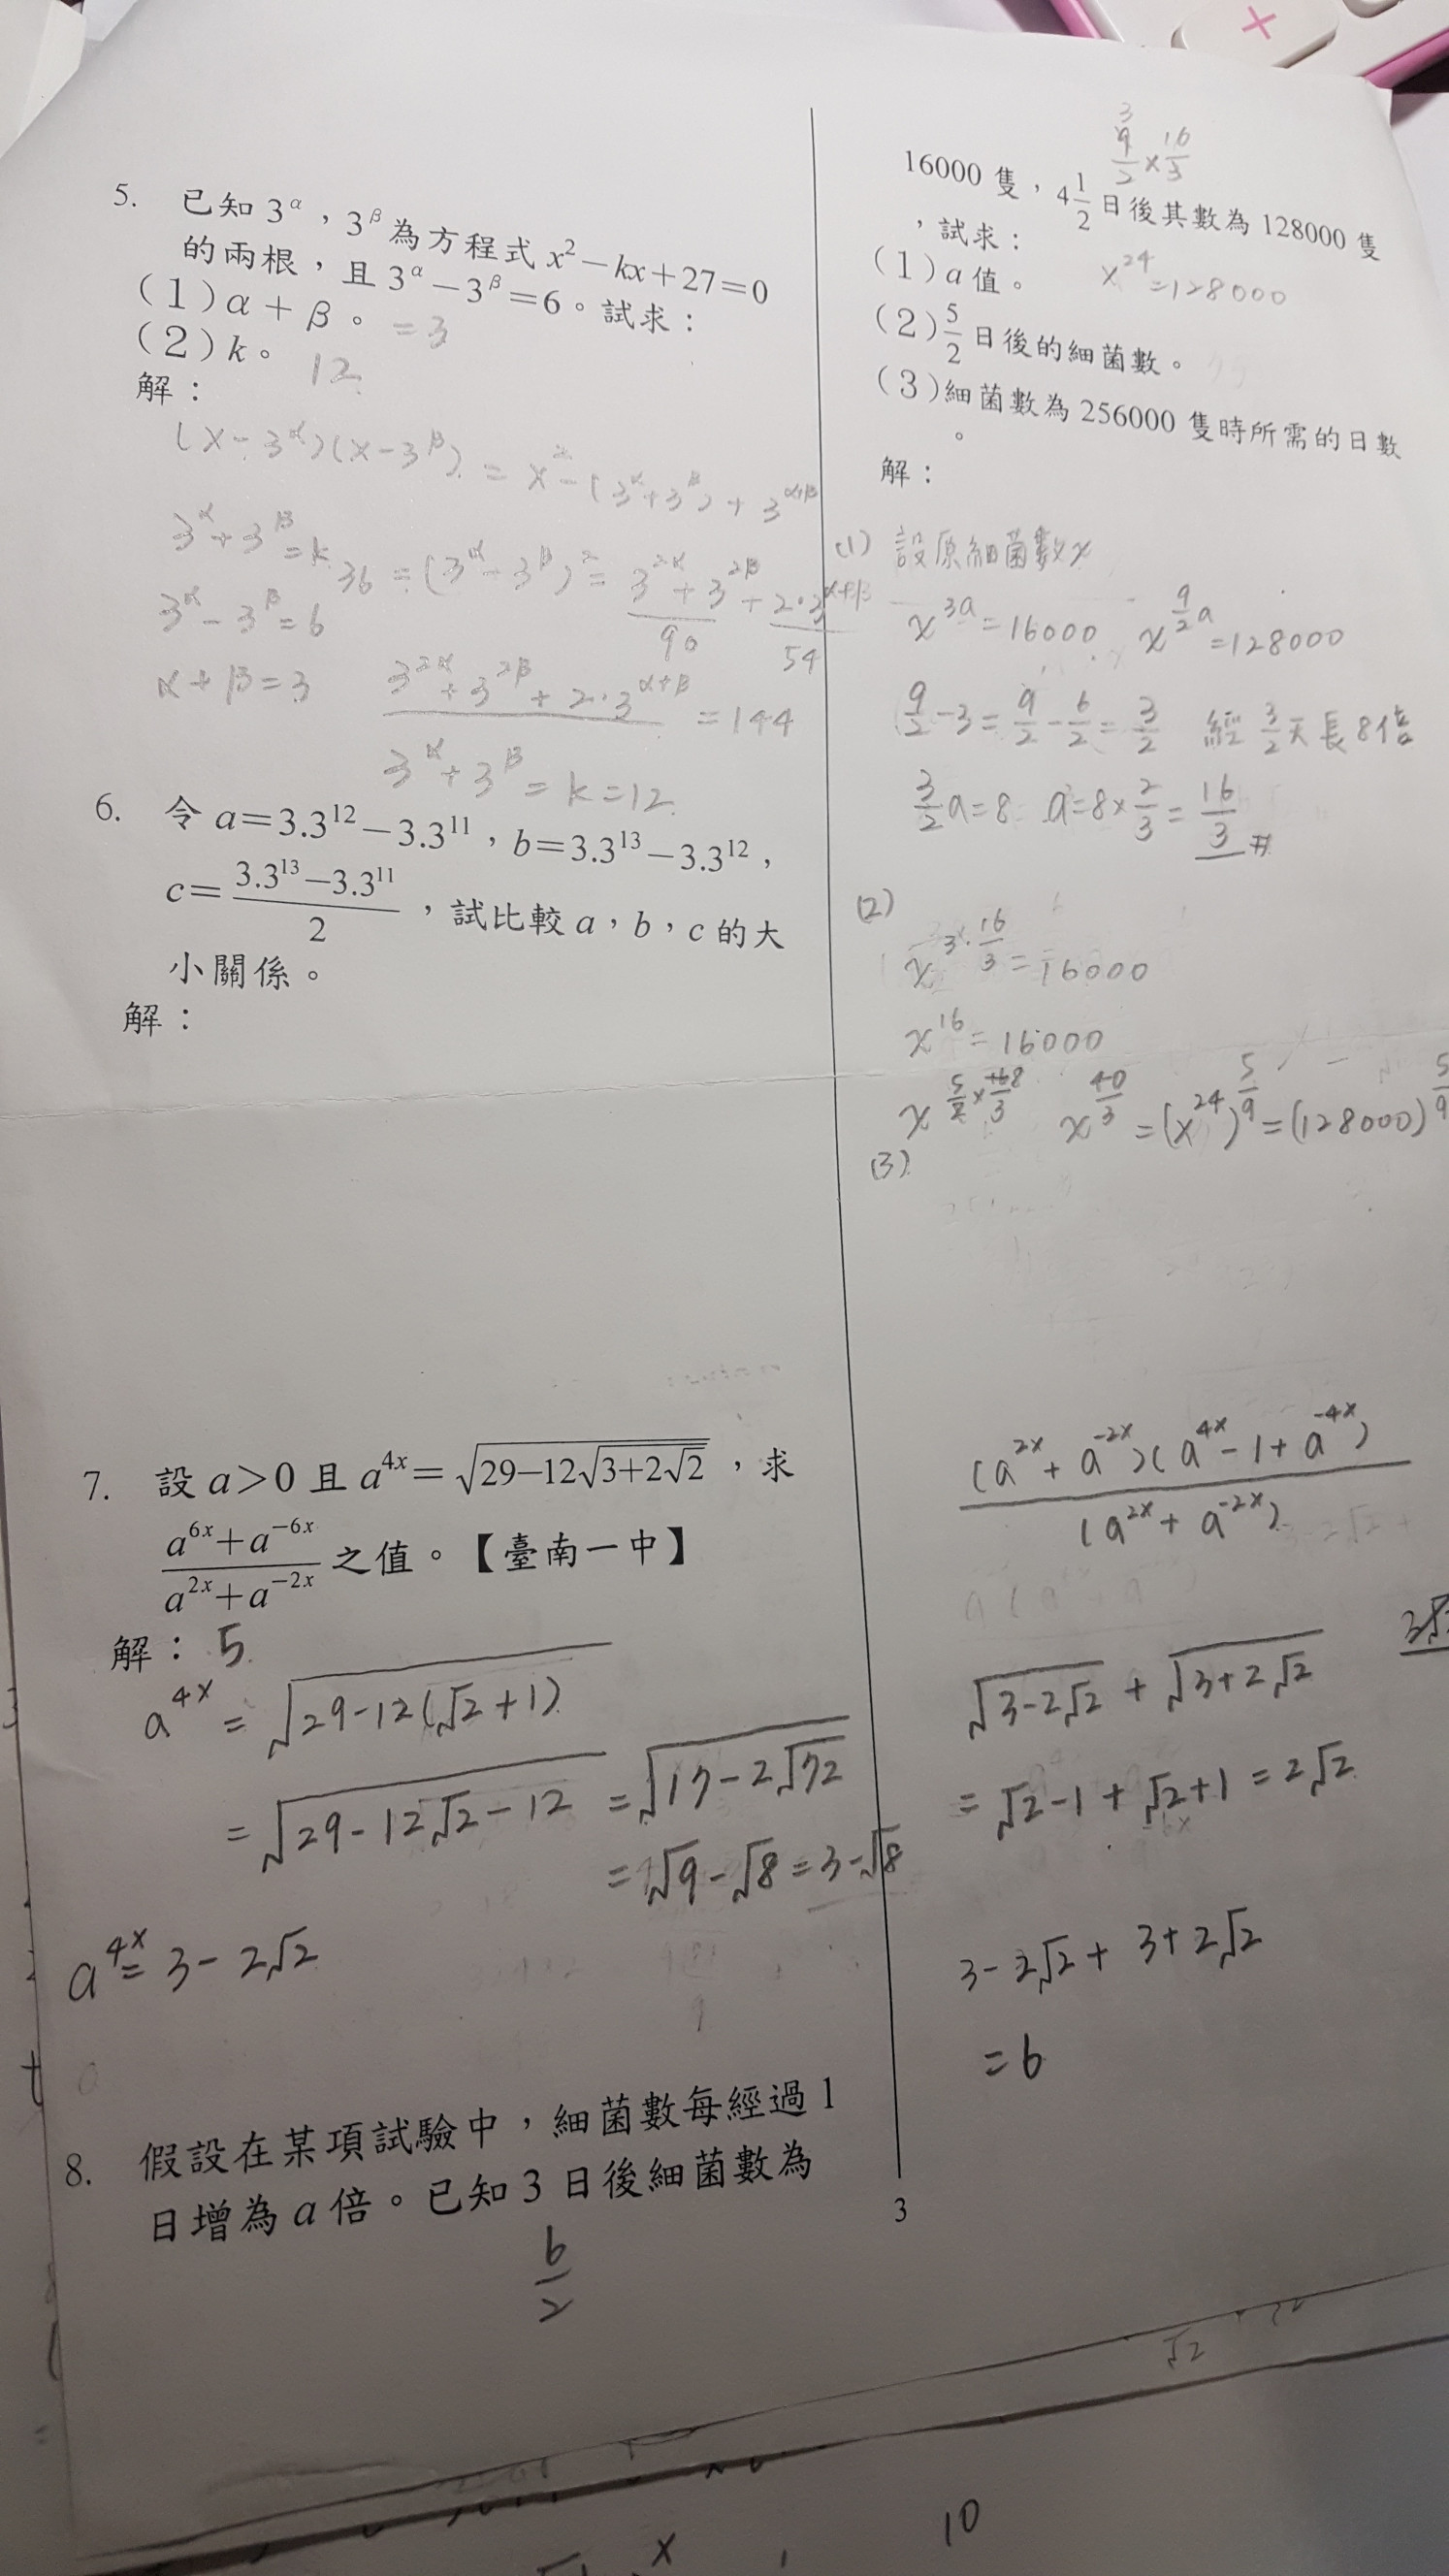 5. 已知 3^α，3^β 為方程式 x²－kx＋27＝0
的兩根，且 3^α－3^β＝6。試求：
(1) α＋β。 =3
(2) k。 12
解：
(x-3^α)(x-3^β) = x²-(3^α+3^β)+3^(α+β)
3^α+3^β=k
36=(3^α-3^β)²=3^2α+3^2β+2·3^(α+β)
3^α-3^β=6
90 54
α+β=3
3^2α+3^2β+2·3^(α+β) =144
3^α+3^β=k=12
6. 令 a＝3.3^12－3.3^11，b＝3.3^13－3.3^12，
c＝(3.3^13－3.3^11)/2，試比較 a，b，c 的大
小關係。
解：
7. 設 a＞0 且 a^4x＝√(29－12√(3+2√2))，求
(a^6x＋a^-6x)/(a^2x＋a^-2x) 之值。【臺南一中】
解： 5
a^4x = √(29-12(√2+1))
= √(29-12√2-12) = √(17-2√72)
= √9-√8=3-√8
a^4x = 3-2√2
8. 假設在某項試驗中，細菌數每經過 1
日增為 a 倍。已知 3 日後細菌數為
6/2
9/2×16/3
3
16000 隻，4 1/2 日後其數為 128000 隻
，試求：
(1) a 值。 x^24=128000
(2) 5/2 日後的細菌數。
(3) 細菌數為 256000 隻時所需的日數
。
解：
(1) 設原細菌數x
x^3a=16000 x^(9/2 a)=128000
9/2-3=9/2-6/2=3/2 經3/2天長8倍
3/2 a=8 a=8×2/3=16/3 #
(2)
x^(3·16/3)=16000
x^16=16000
x^(40/3)=(x^24)^(5/9)=(128000)^(5/9)
(3)
(a^2x+a^-2x)(a^4x-1+a^-4x)
(a^2x+a^-2x)
√(3-2√2) + √(3+2√2)
= √2-1+√2+1=2√2
3-2√2+3+2√2
=6
3
10